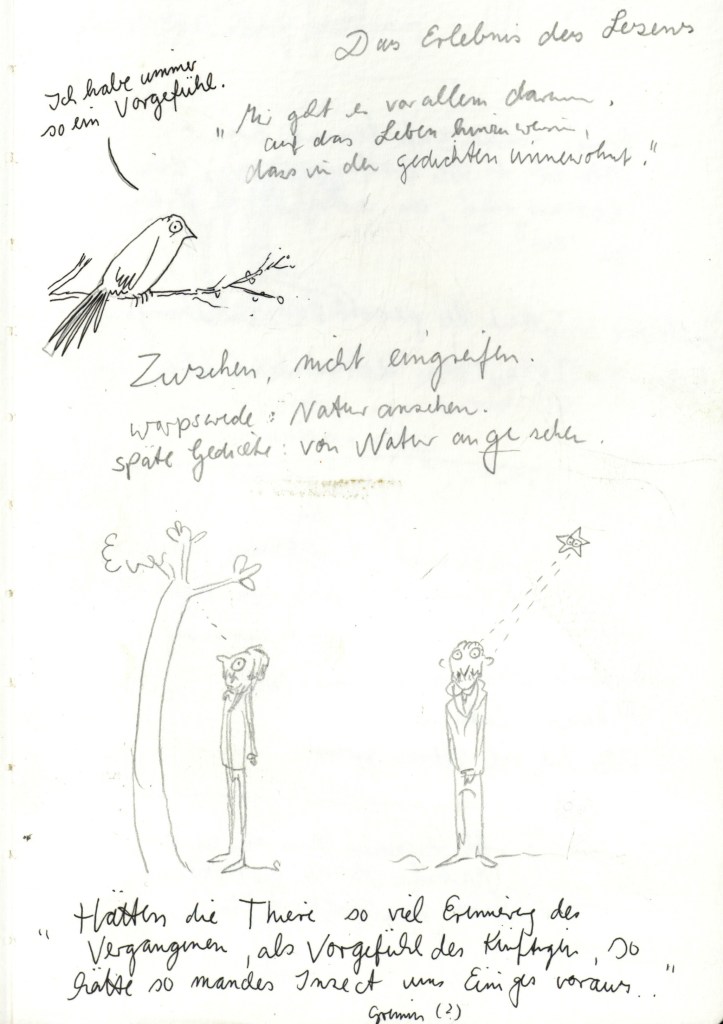 Das Erlebnis des Lesens
Ich habe immer
so ein Vorgefühl.
"Mir geht es vor allem darum,
auf das Leben hinzuweisen,
dass in den gedichten innewohnt."
Zusehen, nicht eingreifen.
Worpswede: Natur ansehen.
späte Gedichte: von Natur angesehen.
"Hätten die Thiere so viel Erinnerung des
Vergangenen, als Vorgefühl des Künftigen, so
hätte so manches Insect uns Einiges voraus.."
(?)